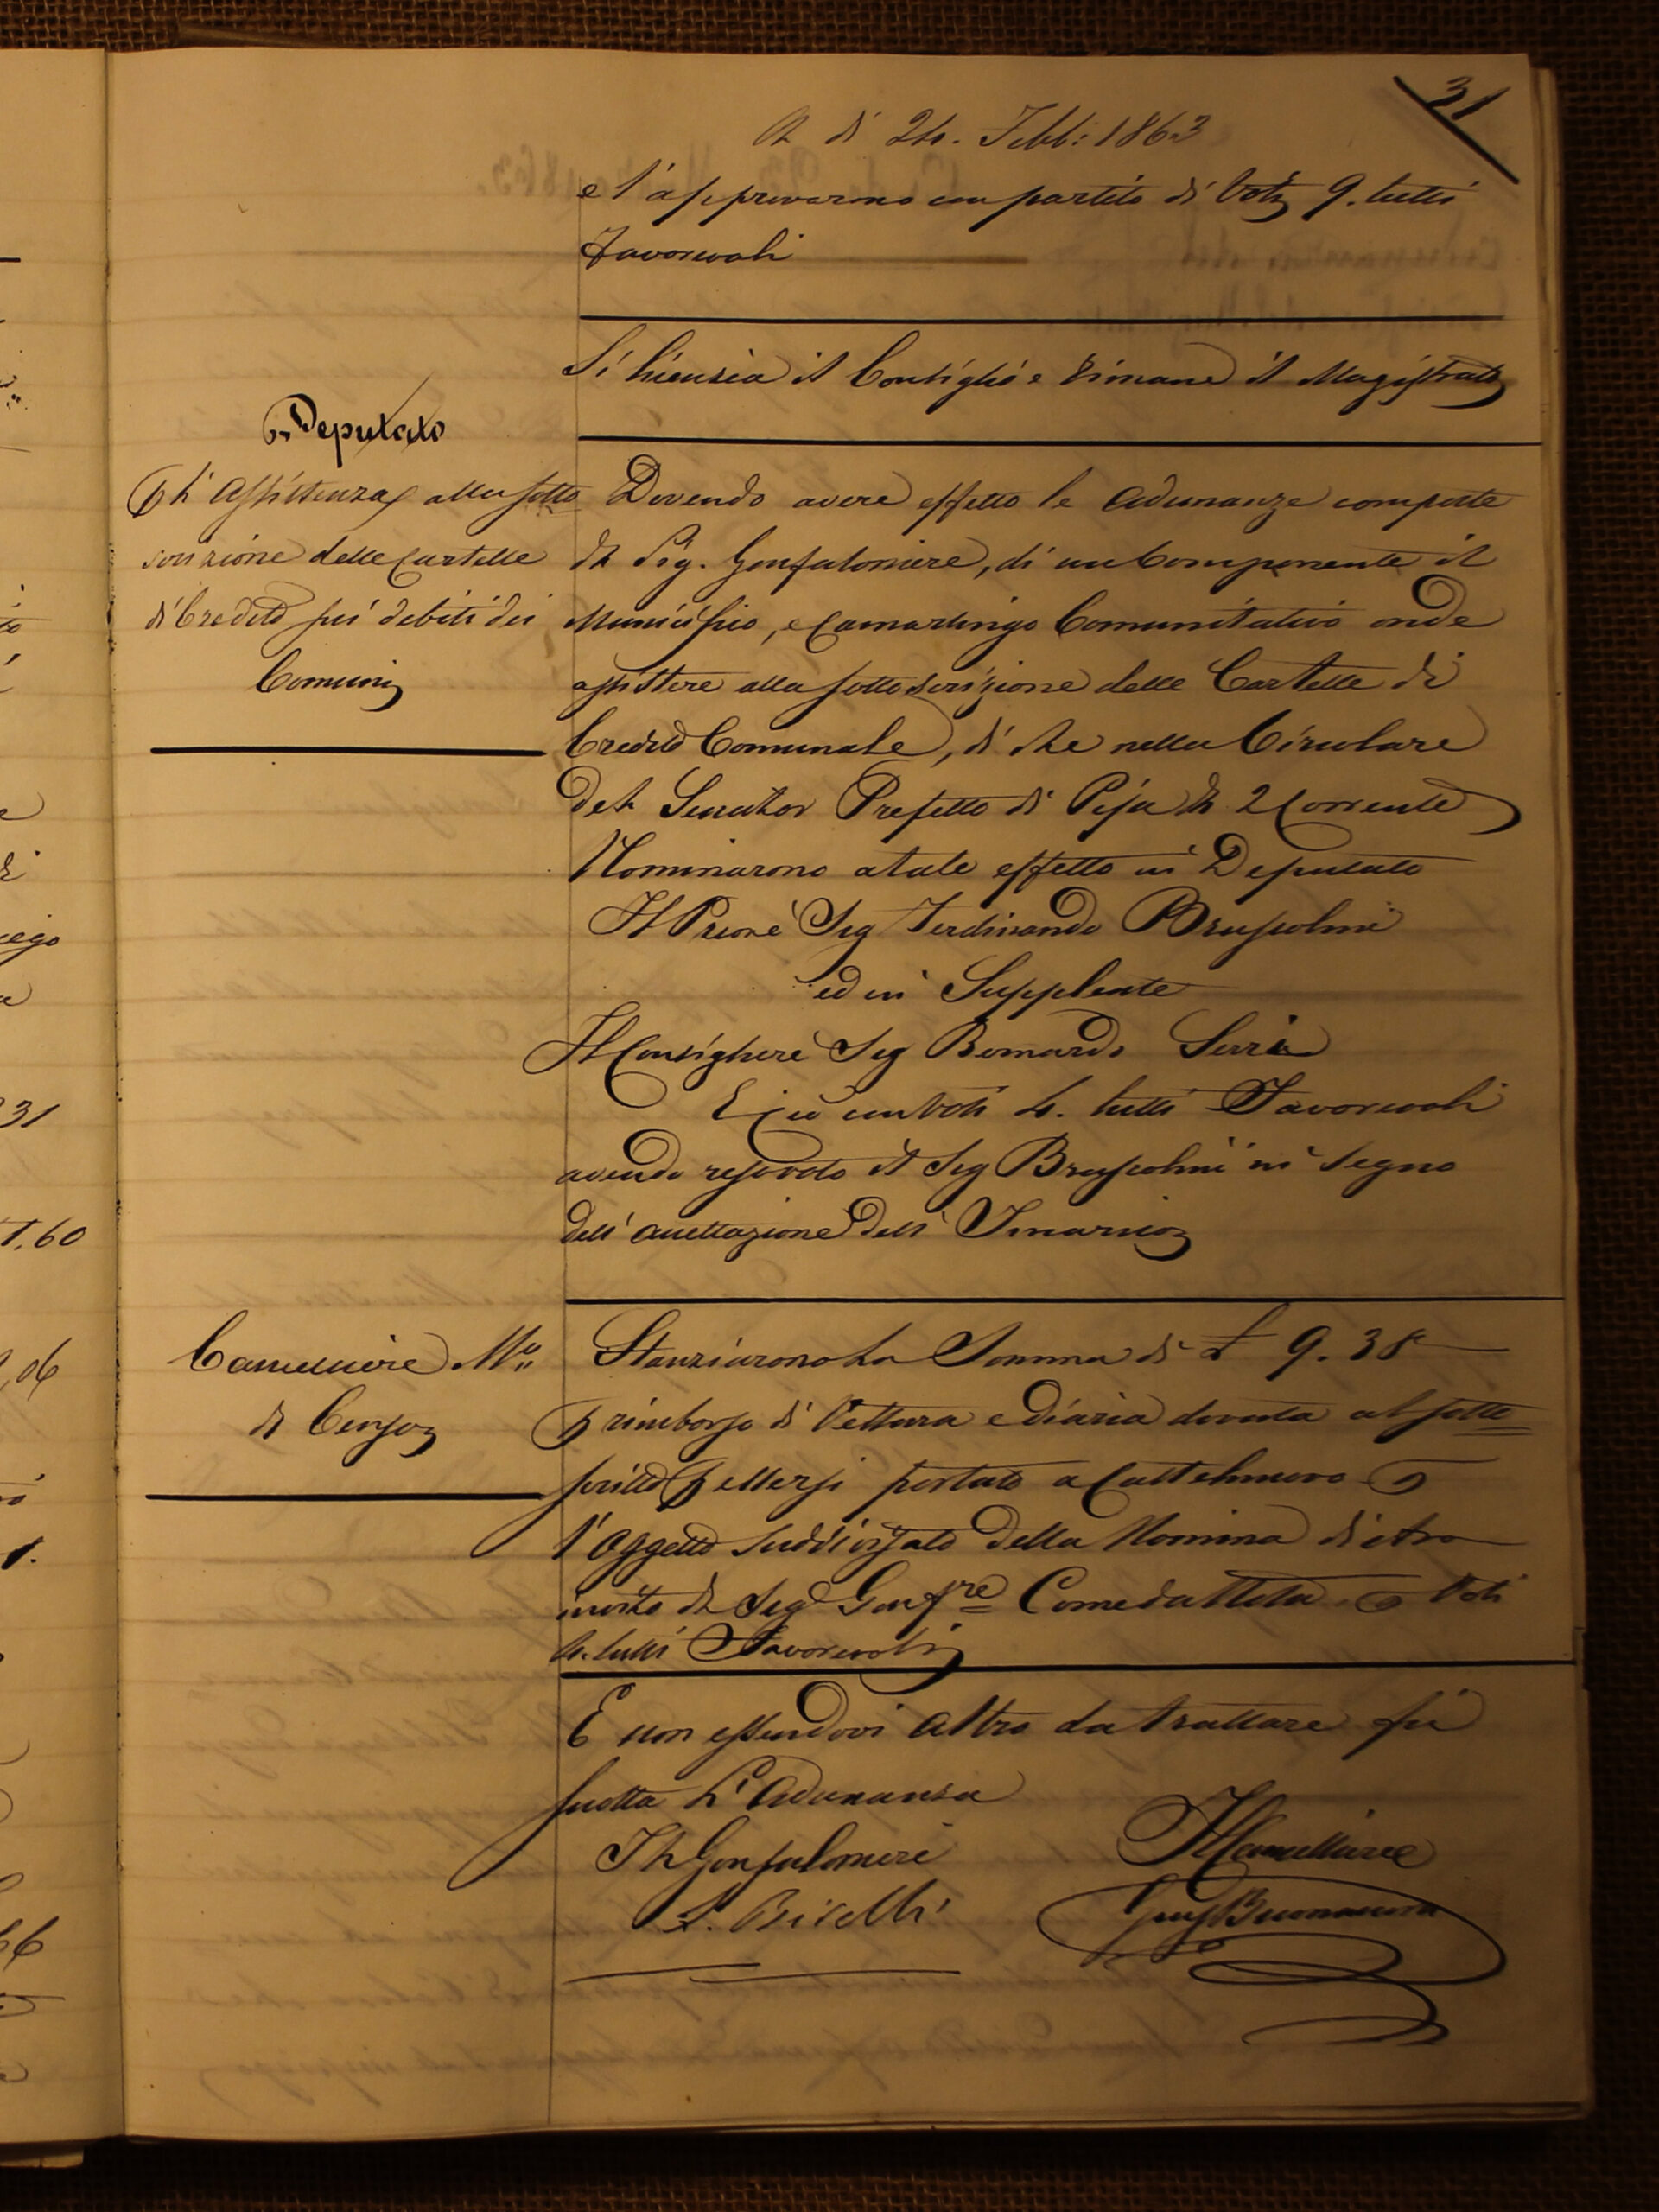 31
A dì 24. Febb: 1863
e l'approvarono con partito di Voti 9. tutti
Favorevoli
Si licenzia il Consiglio e rimane il Magistrato
Deputato
l'assistenza alla sotto
scrizione delle Cartelle
di Credito sui debiti dei
Comuni
Dovendo avere effetto le adunanze composte
Sig. Gonfaloniere, di un Componente il
Municipio, e Camarlingo Comunitativo onde
assistere alla sottoscrizione delle Cartelle di
Credito Comunale, di che nella Circolare
del Senator Prefetto di Pisa 2 Corrente
Nominarono a tale effetto in Deputato
Il Priore Sig Ferdinando Bruscolini
ed in Supplente
Il Consigliere Sig Bernardo Serri
E ciò con Voti 4. tutti Favorevoli
avendo resovoto il Sig Bruscolini in segno
dell'accettazione dell'Incarico
Cancelliere Mo
di Censo
Stanziarono La Somma di £ 9.38
rimborso di Vettura e Diaria dovuta al sotto
scritto essersi portato a Castelnuovo
l'oggetto suddivisato della Nomina dietro
invito Sig Gonfre Come da Nota Voti
4. tutti Favorevoli
E non essendovi altro da trattare fu
sciolta L'adunanza
Il Gonfaloniere
Il Cancelliere
Buonamici
31
1.60
06
66